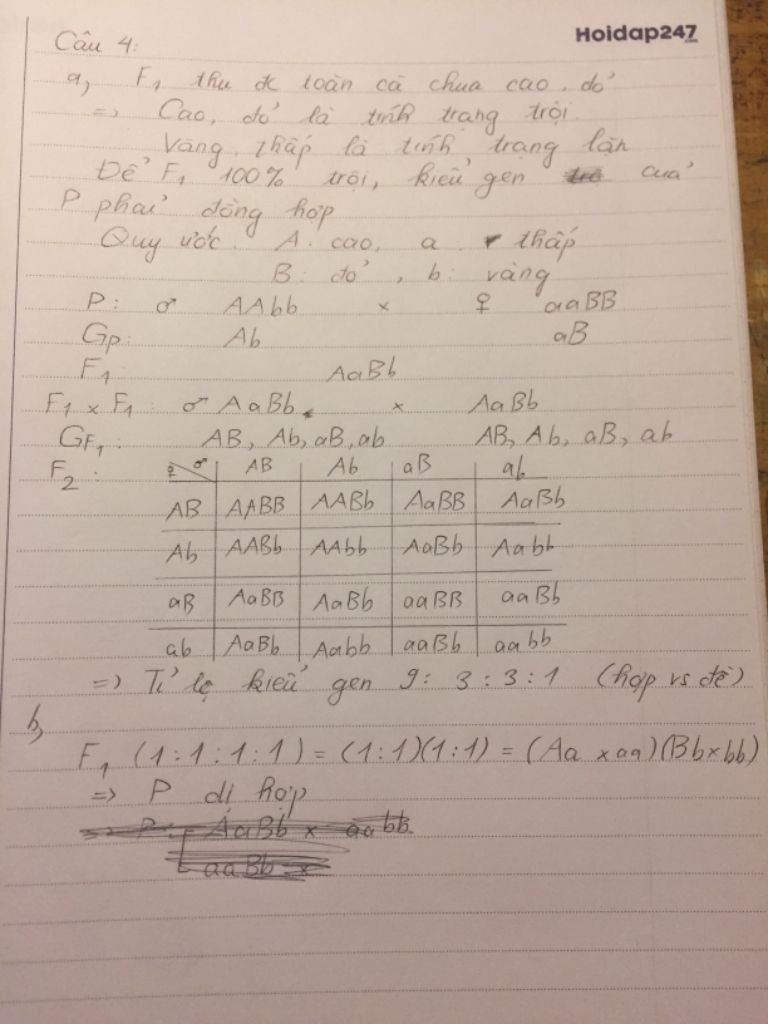 Hoidap247
Câu 4:
a, F1 thu đc toàn cà chua cao, đỏ
=> Cao, đỏ là tính trạng trội.
Vàng, thấp là tính trạng lặn
Để F1 100% trội, kiểu gen của
P phải đồng hợp
Quy ước. A. cao, a. thấp
B: đỏ, b: vàng
P: ♂ AAbb x ♀ aaBB
Gp: Ab aB
F1: AaBb
F1 x F1: ♂ AaBb x AaBb
GF1: AB, Ab, aB, ab AB, Ab, aB, ab
F2: ♀ ♂ AB Ab aB ab
AB AABB AABb AaBB AaBb
Ab AABb AAbb AaBb Aabb
aB AaBB AaBb aaBB aaBb
ab AaBb Aabb aaBb aabb
=> Tỉ lệ kiểu gen 9: 3: 3: 1 (hợp vs đề)
b,
F1 (1:1:1:1) = (1:1)(1:1) = (Aa x aa)(Bb x bb)
=> P dị hợp
=> P: AaBb x aabb
aaBb x